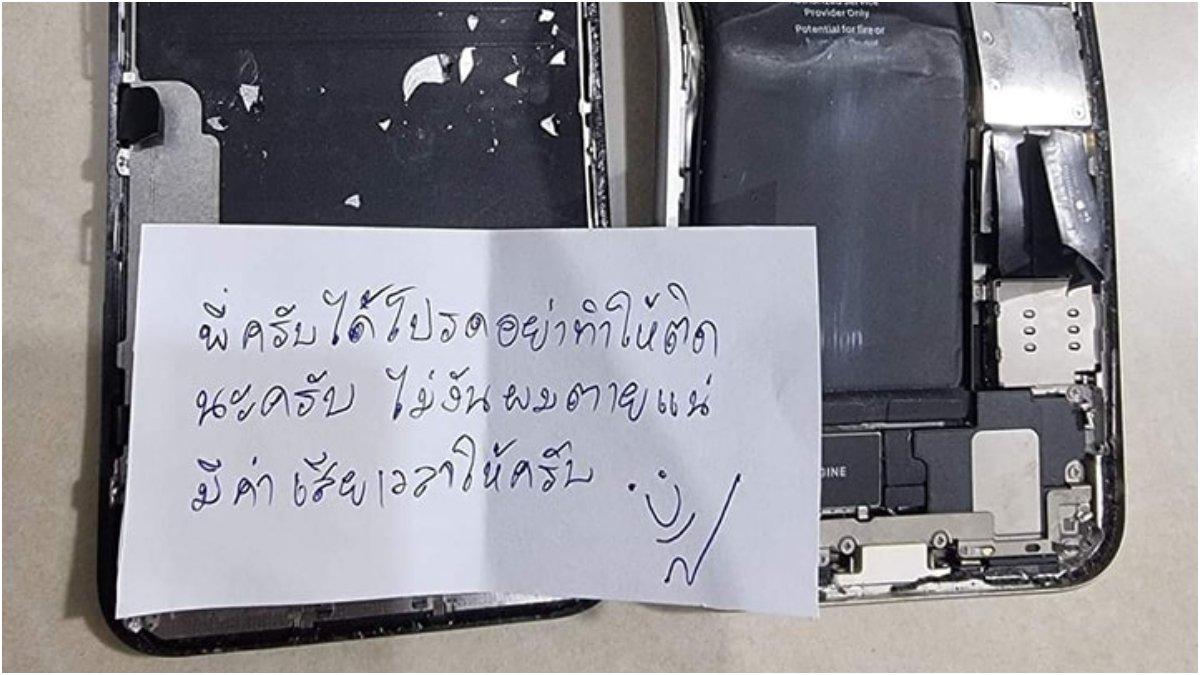 Provider Only
Potential for fire or
พี่ครับได้โปรดอย่าทำให้ติด
นะครับ ไม่งั้นผมตายแน่
มีค่าเสียเวลาให้ครับ
GINE